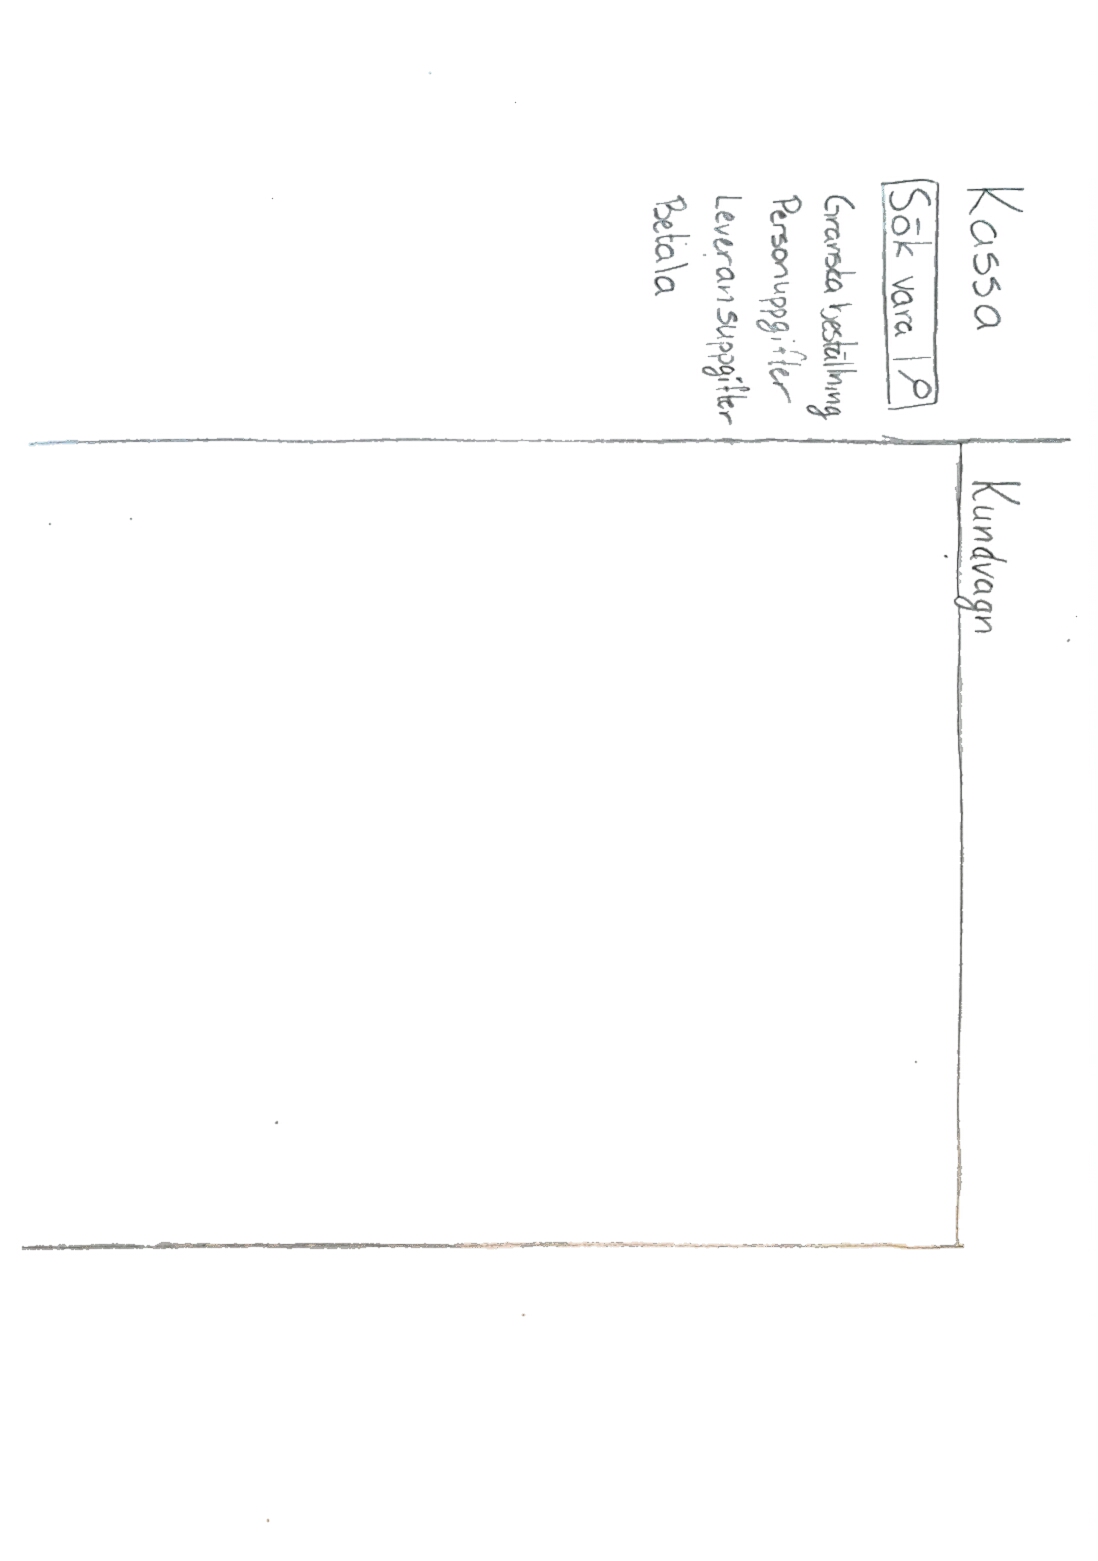 Kassa
Sök vara
Granska beställning
Personuppgifter
Leveransuppgifter
Betala
Kundvagn